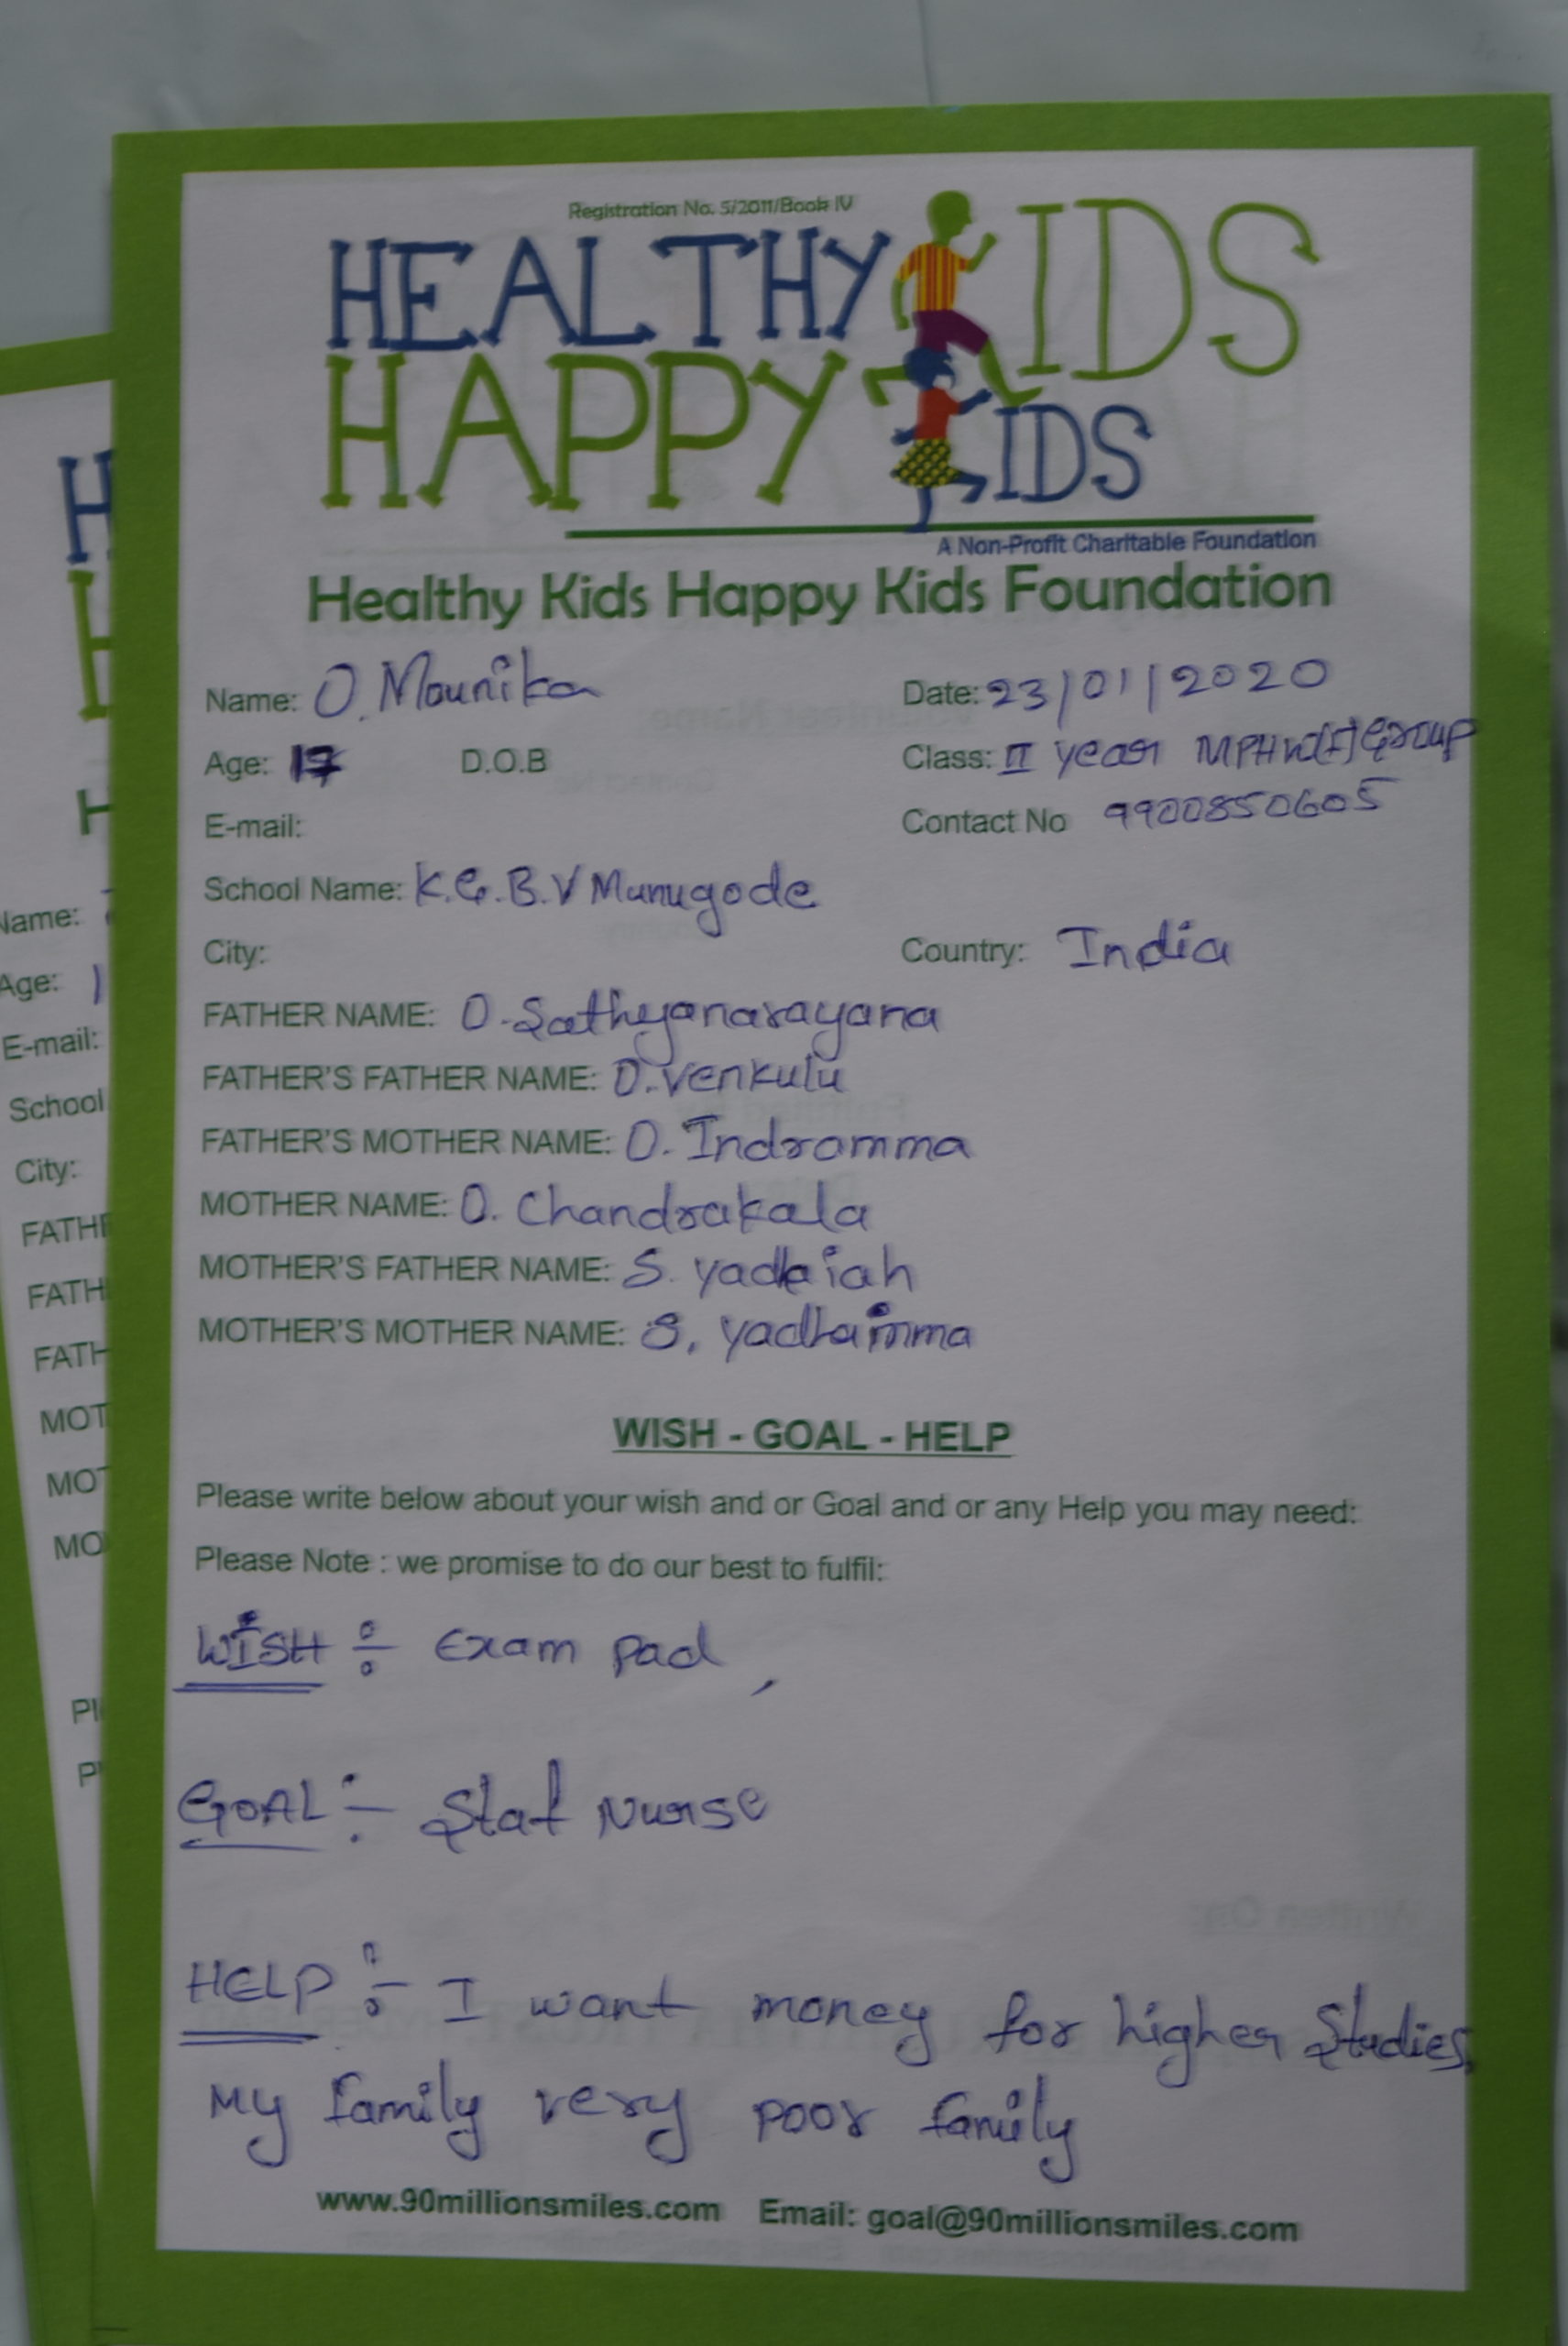 Registration No. 5/2011/Book IV
HEALTHY KIDS
HAPPY KIDS
A Non-Profit Charitable Foundation
Healthy Kids Happy Kids Foundation
Name: O. Mounika Date: 23/01/2020
Age: 17 D.O.B Class: II year MPHW(F) Group
E-mail: Contact No 9900850605
School Name: K.G.B.V Munugode
City: Country: India
FATHER NAME: O. Sathyanarayana
FATHER'S FATHER NAME: O. Venkulu
FATHER'S MOTHER NAME: O. Indramma
MOTHER NAME: O. Chandrakala
MOTHER'S FATHER NAME: S. yadaiah
MOTHER'S MOTHER NAME: S. yadhamma
WISH - GOAL - HELP
Please write below about your wish and or Goal and or any Help you may need:
Please Note : we promise to do our best to fulfil:
WISH ÷ Exam pad,
GOAL :- Staf Nurse
HELP ÷ I want money for higher Studies,
My family very poor family
www.90millionsmiles.com Email: goal@90millionsmiles.com
H
H
H
Name:
Age: 1
E-mail:
School
City:
FATHE
FATH
FATH
MOT
MOT
MO
Pl
P